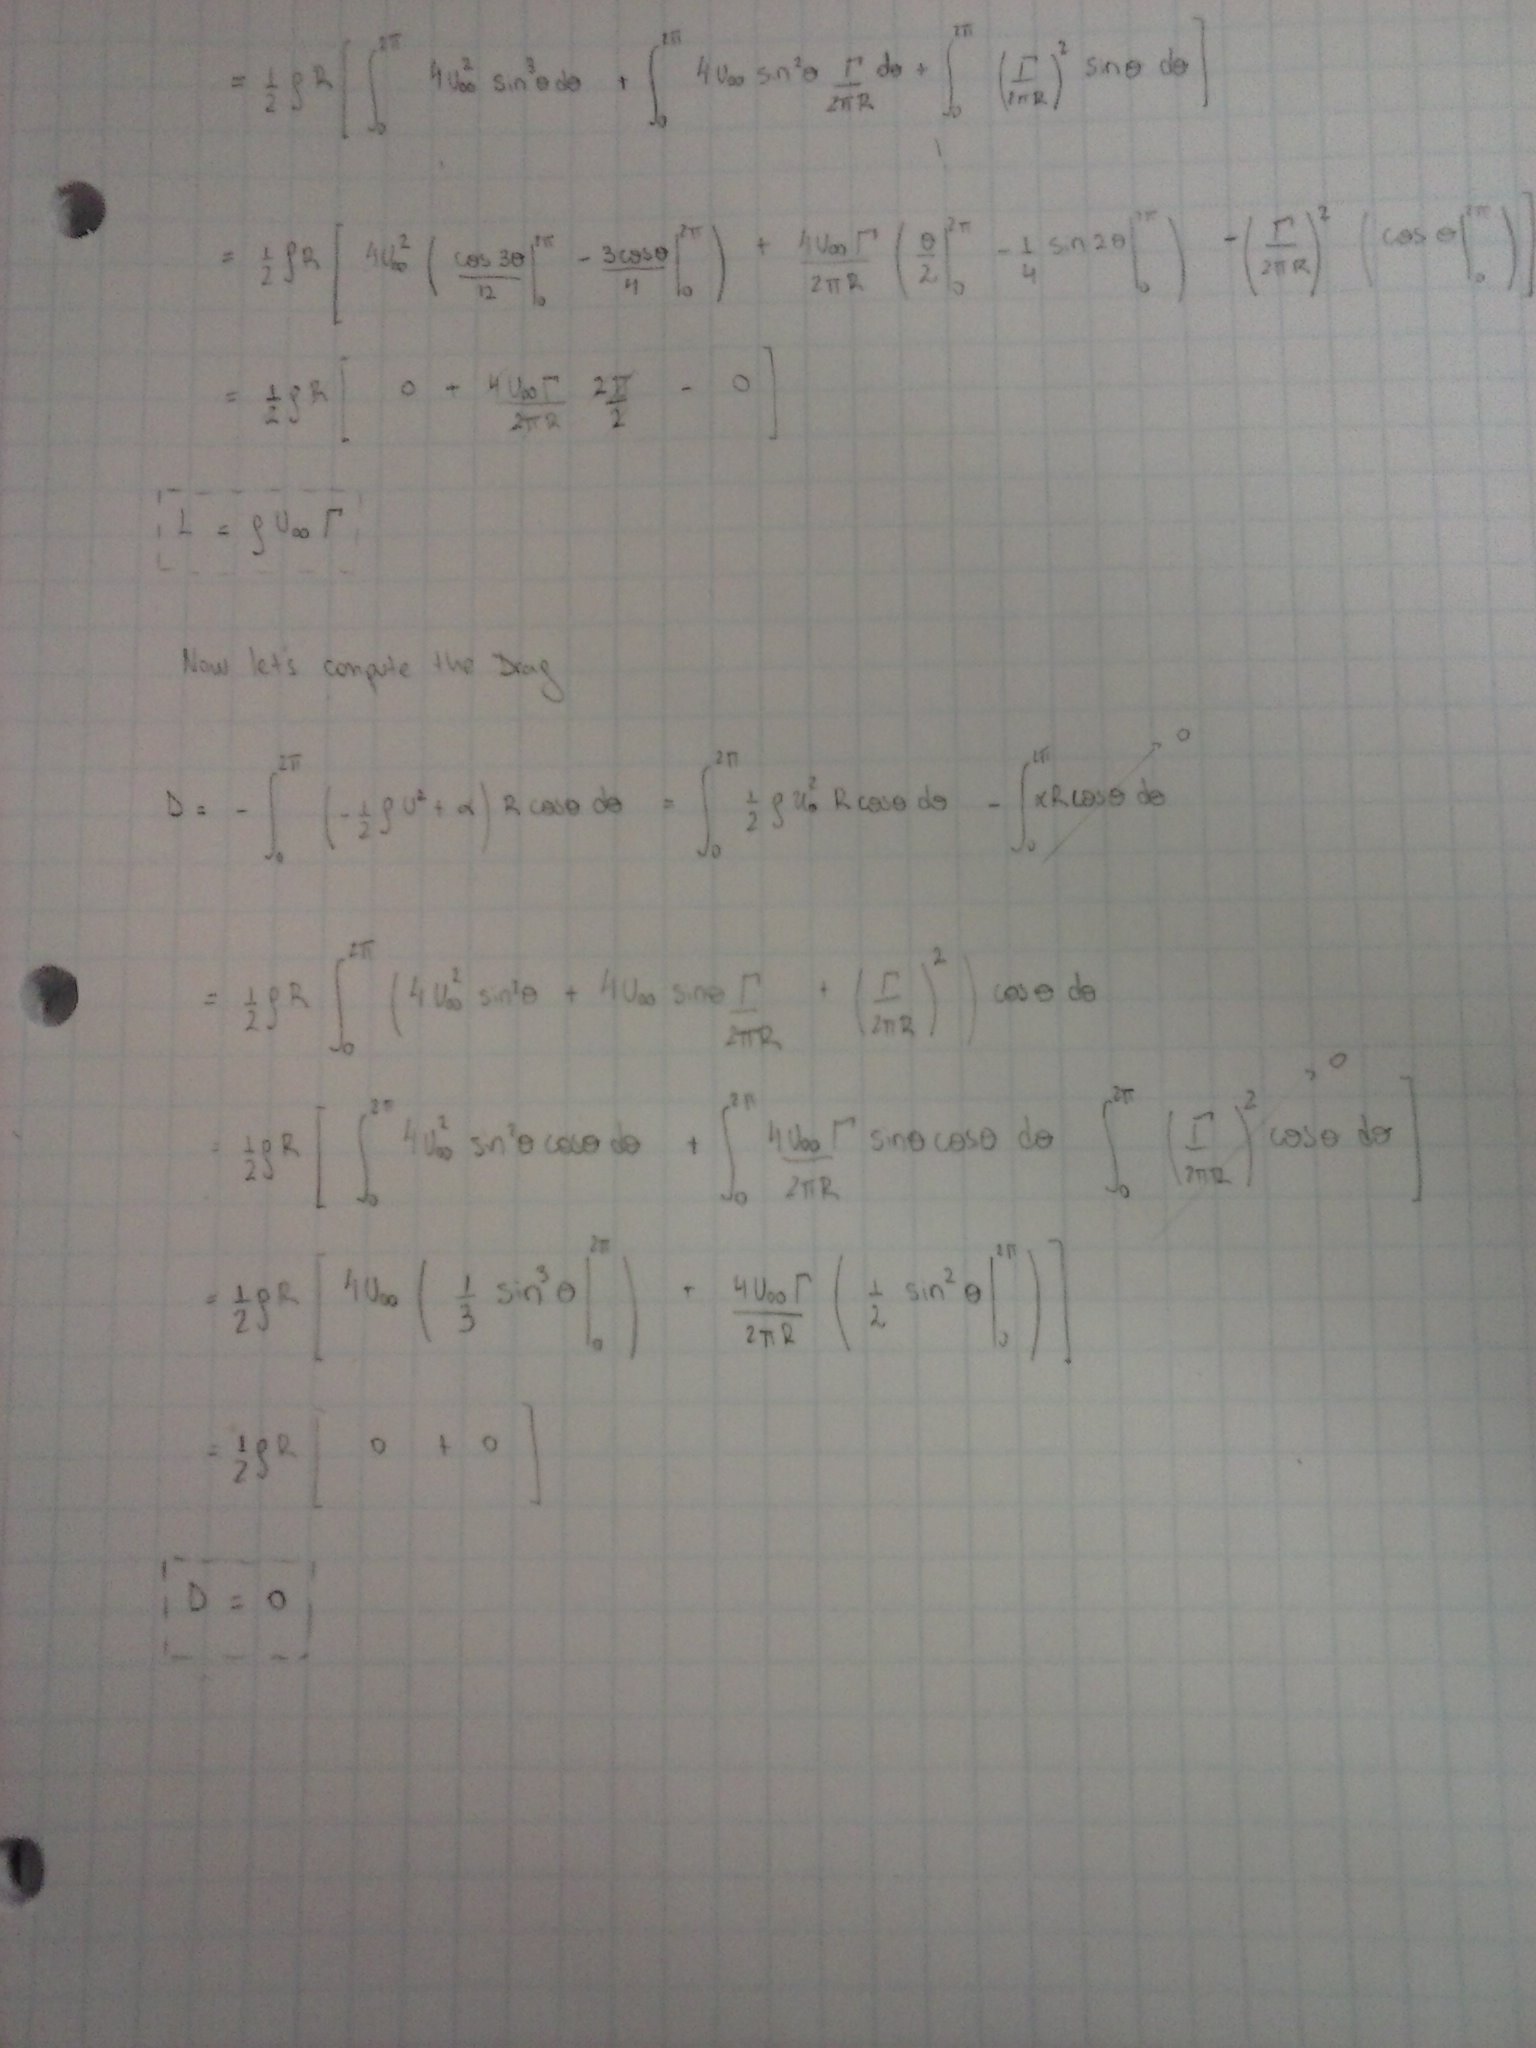 = 1/2 ρR [ ∫₀^2π 4U∞² sin³θ dθ + ∫₀^2π 4U∞ sin²θ Γ/2πR dθ + ∫₀^2π (Γ/2πR)² sinθ dθ ]
= 1/2 ρR [ 4U∞² ( cos 3θ/12 |₀^2π - 3cosθ/4 |₀^2π ) + 4U∞Γ/2πR ( θ/2 |₀^2π - 1/4 sin 2θ |₀^2π ) - (Γ/2πR)² ( cos θ |₀^2π ) ]
= 1/2 ρR [ 0 + 4U∞Γ/2πR 2π/2 - 0 ]
L = ρ U∞ Γ
Now lets compute the Drag
D = - ∫₀^2π (-1/2 ρU² + α) R cosθ dθ = ∫₀^2π 1/2 ρ U∞² R cosθ dθ - ∫₀^2π αR cosθ dθ → 0
= 1/2 ρR ∫₀^2π ( 4U∞² sin²θ + 4U∞ sinθ Γ/2πR + (Γ/2πR)² ) cosθ dθ
= 1/2 ρR [ ∫₀^2π 4U∞² sin²θ cosθ dθ + ∫₀^2π 4U∞Γ/2πR sinθ cosθ dθ ∫₀^2π (Γ/2πR)² cosθ dθ → 0 ]
= 1/2 ρR [ 4U∞ ( 1/3 sin³θ |₀^2π ) + 4U∞Γ/2πR ( 1/2 sin²θ |₀^2π ) ]
= 1/2 ρR [ 0 + 0 ]
D = 0